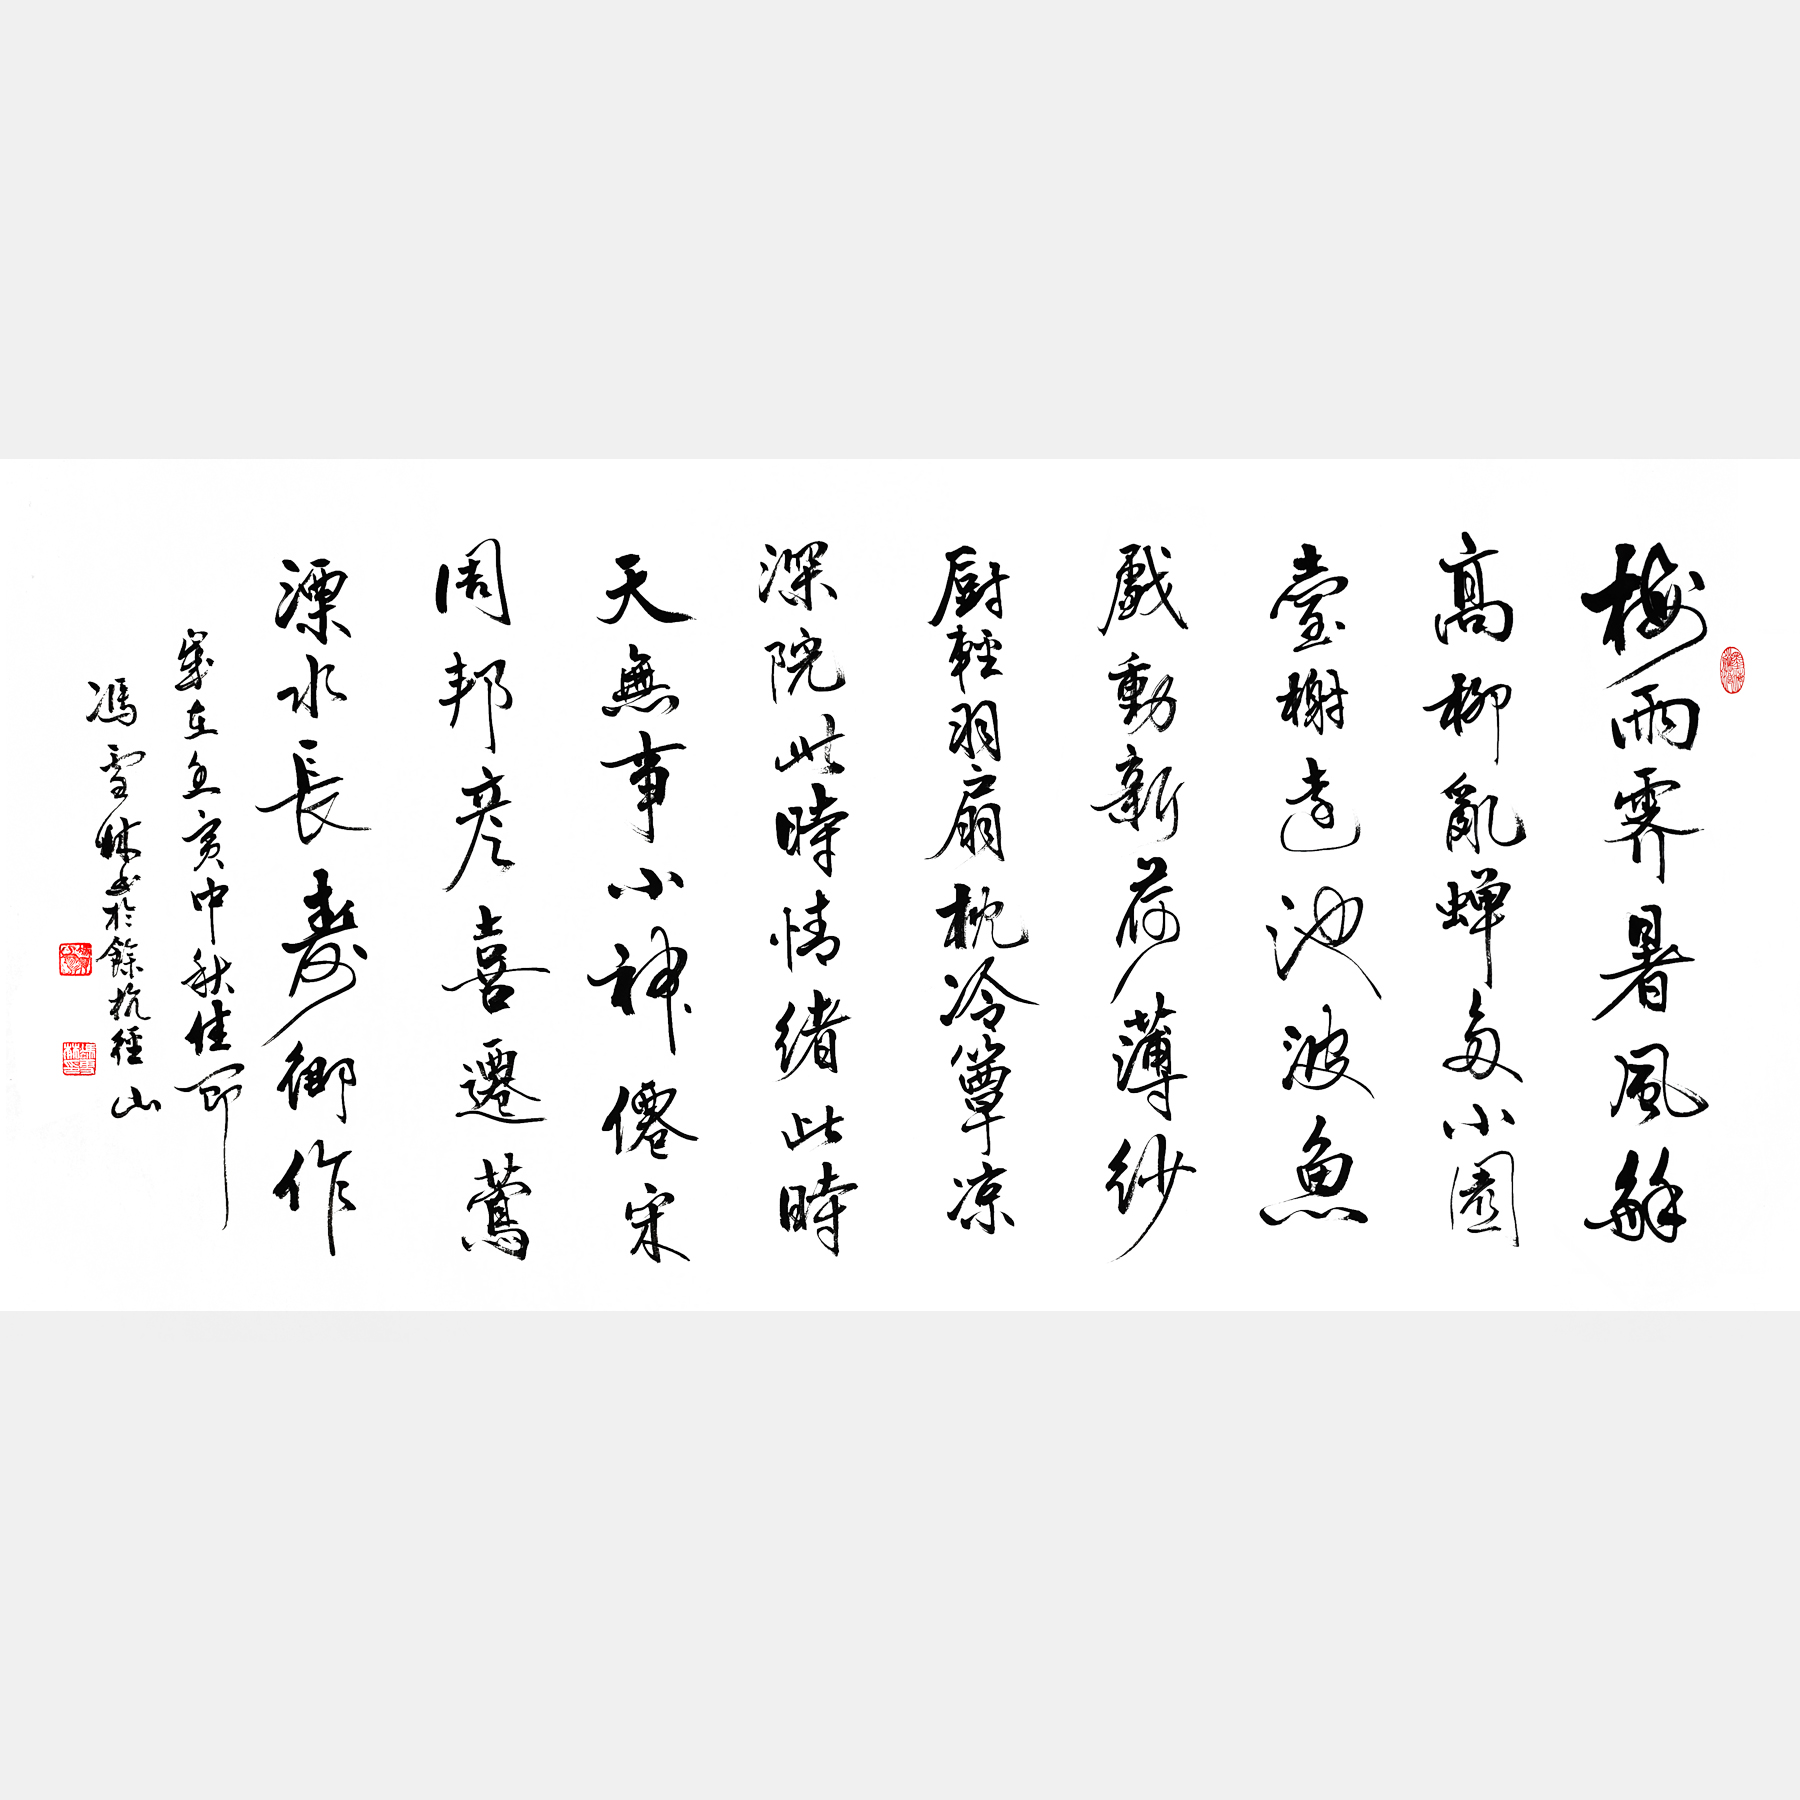 梅雨霽暑風龢
高柳亂蟬多小園
臺榭遠池波魚
戲動新荷薄紗
厨輕羽扇枕冷簟凉
深院此時情緒此時
天無事小神僊宋
周邦彦喜遷鶯
溧水長壽鄉作
歲在己亥中秋佳節
馮雪林書於餘杭徑山